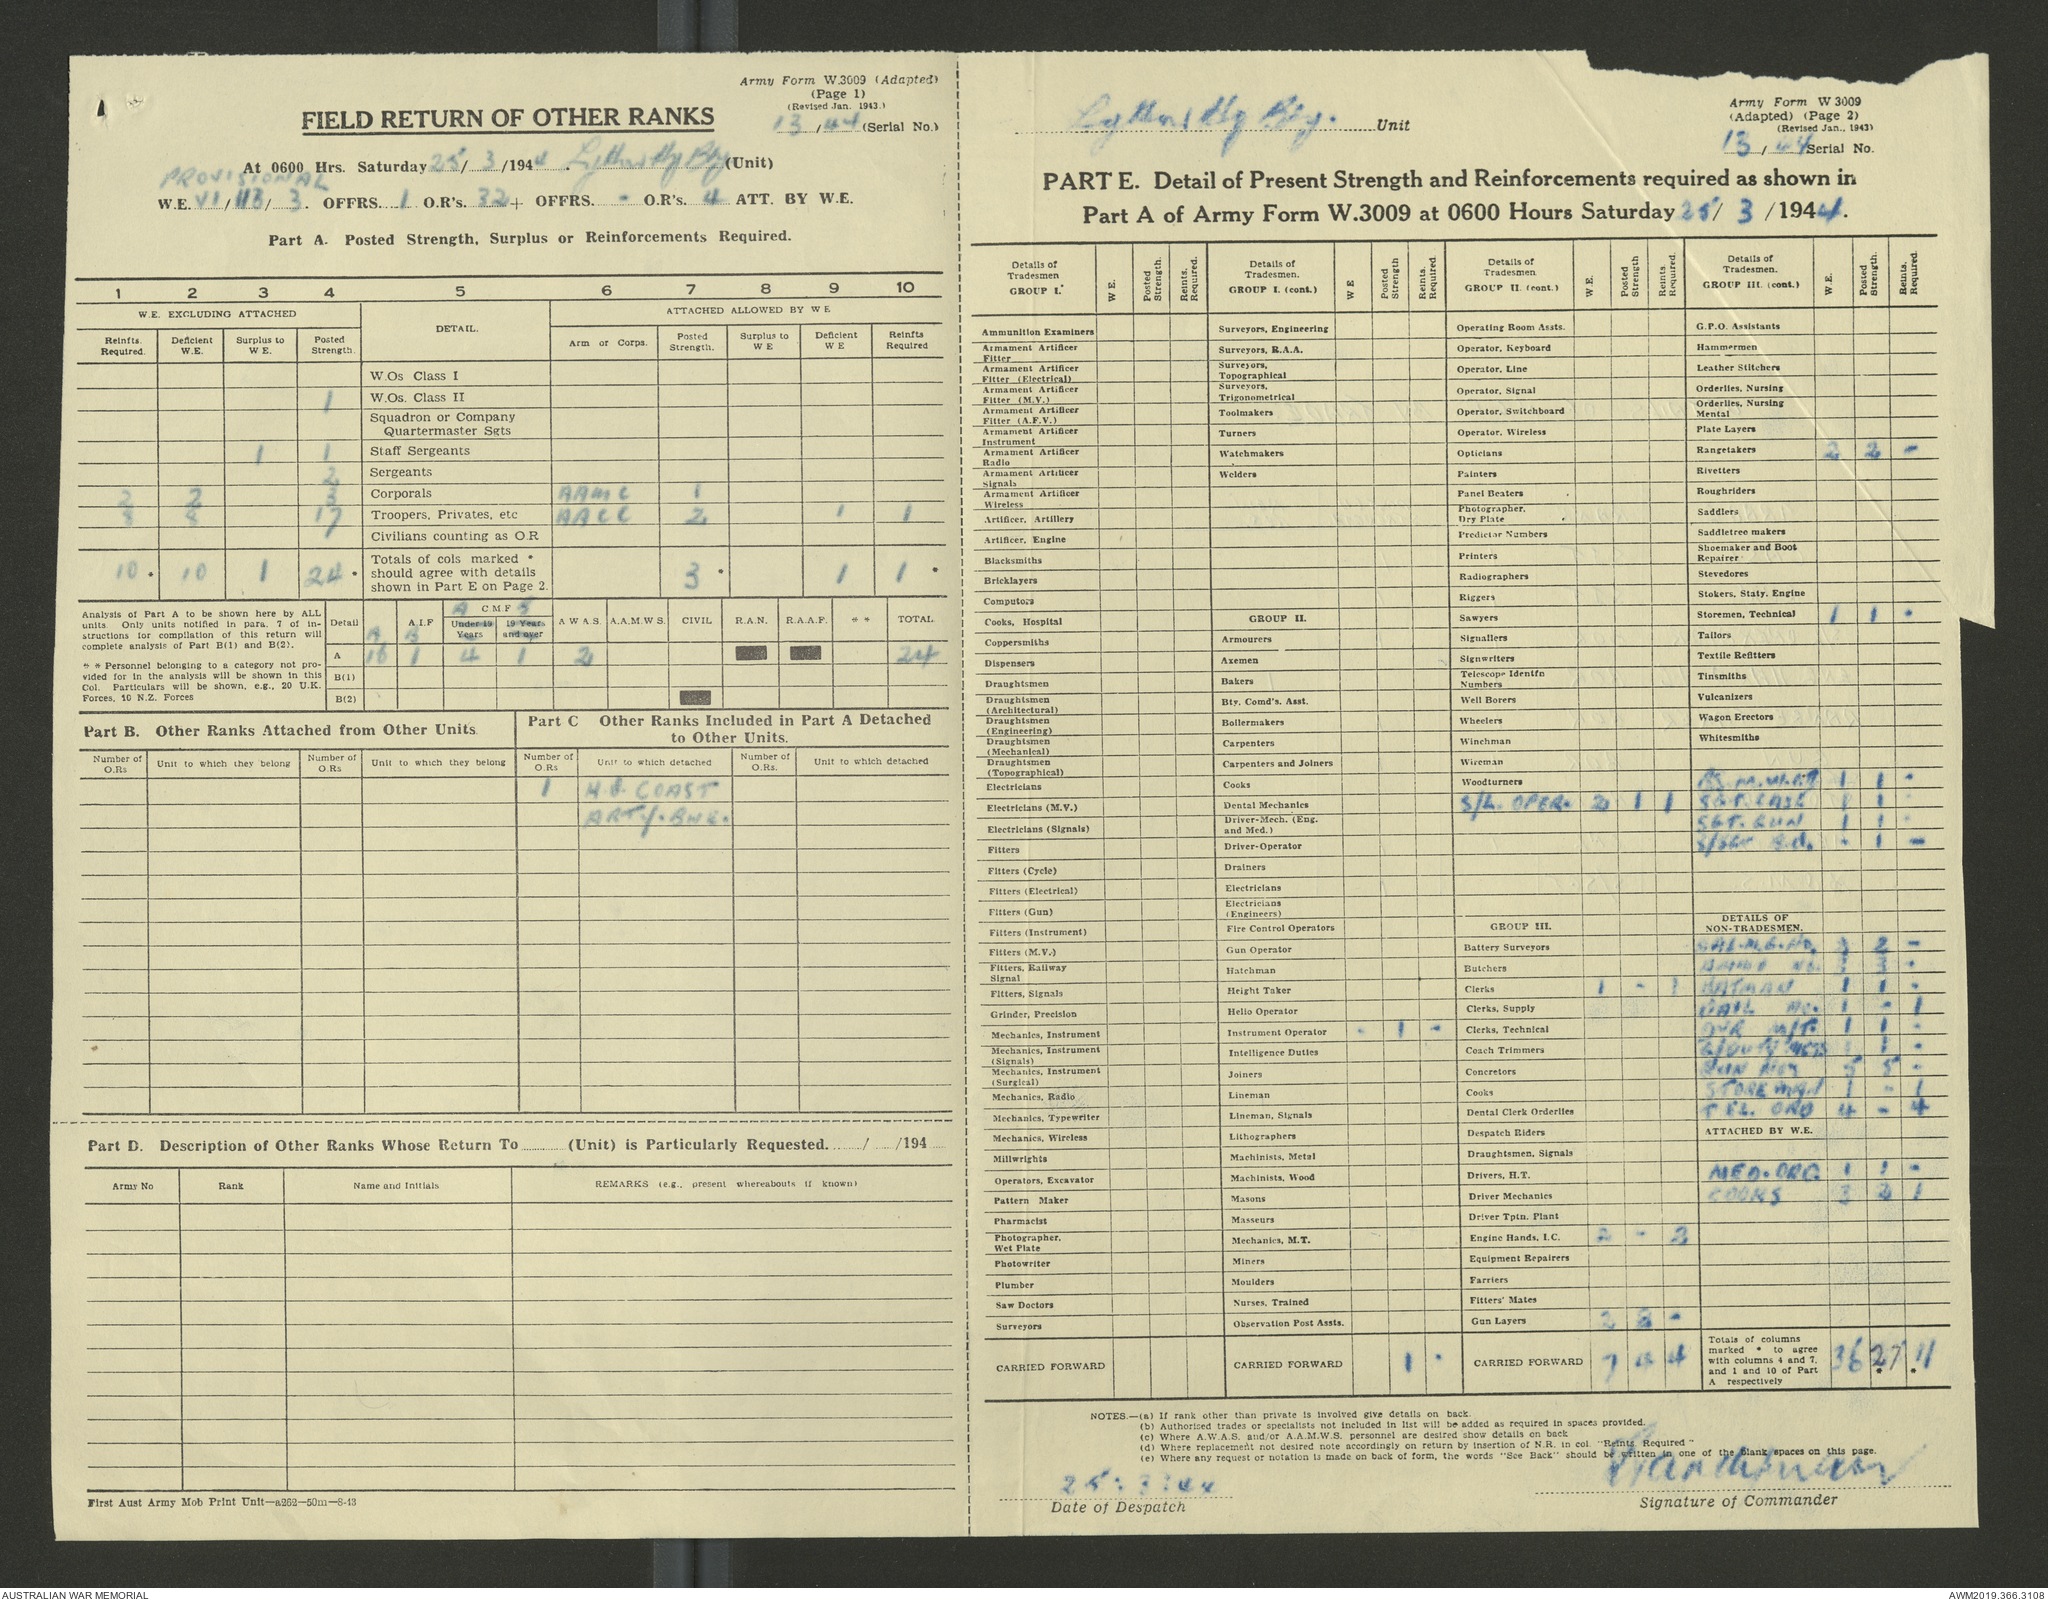 Army Form W.3009 (Adapted)
(Page 1)
(Revised Jan. 1943.)
FIELD RETURN OF OTHER RANKS
13/44 (Serial No.)
At 0600 Hrs. Saturday 25/3/1944. Lytton Hy Bty (Unit)
PROVISIONAL
W.E. VI/113/3. OFFRS. 1 O.R's. 32 + OFFRS. - O.R's. 4 ATT. BY W.E.
Part A. Posted Strength, Surplus or Reinforcements Required.
1 2 3 4 5 6 7 8 9 10
W.E. EXCLUDING ATTACHED DETAIL. ATTACHED ALLOWED BY W E
Reinfts. Required. Deficient W.E. Surplus to W E. Posted Strength. Arm or Corps. Posted Strength. Surplus to W E Deficient W E Reinfts Required
W.Os Class I
1 W.Os. Class II
Squadron or Company
Quartermaster Sgts
1 1 Staff Sergeants
2 Sergeants
2 2 3 Corporals AAMC 1
8 8 17 Troopers, Privates, etc AACC 2 1 1
Civilians counting as O.R
10 * 10 1 24 * Totals of cols marked * should agree with details shown in Part E on Page 2. 3 * 1 1 *
Analysis of Part A to be shown here by ALL
units. Only units notified in para. 7 of in-
structions for compilation of this return will
complete analysis of Part B(1) and B(2).
* * Personnel belonging to a category not pro-
vided for in the analysis will be shown in this
Col. Particulars will be shown, e.g., 20 U.K.
Forces, 10 N.Z. Forces
Detail A.I.F C M F Under 19 Years 19 Years and over A W A S. A.A.M.W S. CIVIL R.A.N. R.A.A.F. * * TOTAL
A 16 1 4 1 2 24
B(1)
B(2)
Part B. Other Ranks Attached from Other Units.
Number of O.Rs Unit to which they belong Number of O.Rs Unit to which they belong
Part C Other Ranks Included in Part A Detached
to Other Units.
Number of O.Rs Unit to which detached Number of O.Rs. Unit to which detached
1 H.Q. COAST
ARTY. BNE.
Part D. Description of Other Ranks Whose Return To ............ (Unit) is Particularly Requested. ....../....../194
Army No Rank Name and Initials REMARKS (e.g., present whereabouts if known)
First Aust Army Mob Print Unit—a262—50m—8-43
Lytton Hy Bty. Unit
Army Form W 3009
(Adapted) (Page 2)
(Revised Jan., 1943)
13/44 Serial No.
PART E. Detail of Present Strength and Reinforcements required as shown in
Part A of Army Form W.3009 at 0600 Hours Saturday 25/3/1944.
Details of Tradesmen GROUP I. W E. Posted Strength. Reints. Required.
Ammunition Examiners
Armament Artificer Fitter
Armament Artificer Fitter (Electrical)
Armament Artificer Fitter (M.V.)
Armament Artificer Fitter (A.F.V.)
Armament Artificer Instrument
Armament Artificer Radio
Armament Artificer Signals
Armament Artificer Wireless
Artificer, Artillery
Artificer, Engine
Blacksmiths
Bricklayers
Computors
Cooks, Hospital
Coppersmiths
Dispensers
Draughtsmen
Draughtsmen (Architectural)
Draughtsmen (Engineering)
Draughtsmen (Mechanical)
Draughtsmen (Topographical)
Electricians
Electricians (M.V.)
Electricians (Signals)
Fitters
Fitters (Cycle)
Fitters (Electrical)
Fitters (Gun)
Fitters (Instrument)
Fitters (M.V.)
Fitters, Railway Signal
Fitters, Signals
Grinder, Precision
Mechanics, Instrument
Mechanics, Instrument (Signals)
Mechanics, Instrument (Surgical)
Mechanics, Radio
Mechanics, Typewriter
Mechanics, Wireless
Millwrights
Operators, Excavator
Pattern Maker
Pharmacist
Photographer, Wet Plate
Photowriter
Plumber
Saw Doctors
Surveyors
CARRIED FORWARD
Details of Tradesmen. GROUP I. (cont.) W E Posted Strength Reints. Required.
Surveyors, Engineering
Surveyors, R.A.A.
Surveyors, Topographical
Surveyors, Trigonometrical
Toolmakers
Turners
Watchmakers
Welders
GROUP II.
Armourers
Axemen
Bakers
Bty. Comd's. Asst.
Boilermakers
Carpenters
Carpenters and Joiners
Cooks
Dental Mechanics
Driver-Mech. (Eng. and Med.)
Driver-Operator
Drainers
Electricians
Electricians (Engineers)
Fire Control Operators
Gun Operator
Hatchman
Height Taker
Helio Operator
Instrument Operator - 1 -
Intelligence Duties
Joiners
Lineman
Lineman, Signals
Lithographers
Machinists, Metal
Machinists, Wood
Masons
Masseurs
Mechanics, M.T.
Miners
Moulders
Nurses, Trained
Observation Post Assts.
CARRIED FORWARD 1 -
Details of Tradesmen. GROUP II. (cont.) W.E. Posted Strength Reints. Required.
Operating Room Assts.
Operator, Keyboard
Operator, Line
Operator, Signal
Operator, Switchboard
Operator, Wireless
Opticians
Painters
Panel Beaters
Photographer, Dry Plate
Predictor Numbers
Printers
Radiographers
Riggers
Sawyers
Signallers
Signwriters
Telescope Identfn Numbers
Well Borers
Wheelers
Winchman
Wireman
Woodturners
S/L. OPER. 2 1 1
GROUP III.
Battery Surveyors
Butchers
Clerks 1 - 1
Clerks, Supply
Clerks, Technical
Coach Trimmers
Concretors
Cooks
Dental Clerk Orderlies
Despatch Riders
Draughtsmen, Signals
Drivers, H.T.
Driver Mechanics
Driver Tptn. Plant
Engine Hands, I.C. 2 - 2
Equipment Repairers
Farriers
Fitters' Mates
Gun Layers 2 2 -
CARRIED FORWARD 7 4 4
Details of Tradesmen. GROUP III. (cont.) W.E. Posted Strength. Reints. Required.
G.P.O. Assistants
Hammermen
Leather Stitchers
Orderlies, Nursing
Orderlies, Nursing Mental
Plate Layers
Rangetakers 2 2 -
Rivetters
Roughriders
Saddlers
Saddletree makers
Shoemaker and Boot Repairer
Stevedores
Stokers, Staty. Engine
Storemen, Technical 1 1 -
Tailors
Textile Refitters
Tinsmiths
Vulcanizers
Wagon Erectors
Whitesmiths
1 1 -
1 -
SGT. GUN 1 1 -
- 1 -
DETAILS OF
NON-TRADESMEN.
2 -
BATMAN 1 1 -
1 - 1
DVR M/T. 1 1 -
1 -
GUN NOS 5 5 -
STOREMAN 1 - 1
TEL. ORD 4 - 4
ATTACHED BY W.E.
MED. ORD. 1 1 -
COOKS 3 2 1
Totals of columns marked * to agree with columns 4 and 7, and 1 and 10 of Part A respectively 36 27 * 11 *
NOTES.—(a) If rank other than private is involved give details on back.
(b) Authorised trades or specialists not included in list will be added as required in spaces provided.
(c) Where A.W.A.S. and/or A.A.M.W.S. personnel are desired show details on back
(d) Where replacement not desired note accordingly on return by insertion of N.R. in col. "Reints. Required"
(e) Where any request or notation is made on back of form, the words "See Back" should be written in one of the blank spaces on this page.
25:3:44
Date of Despatch
Signature of Commander
AUSTRALIAN WAR MEMORIAL
AWM2019.366.3108